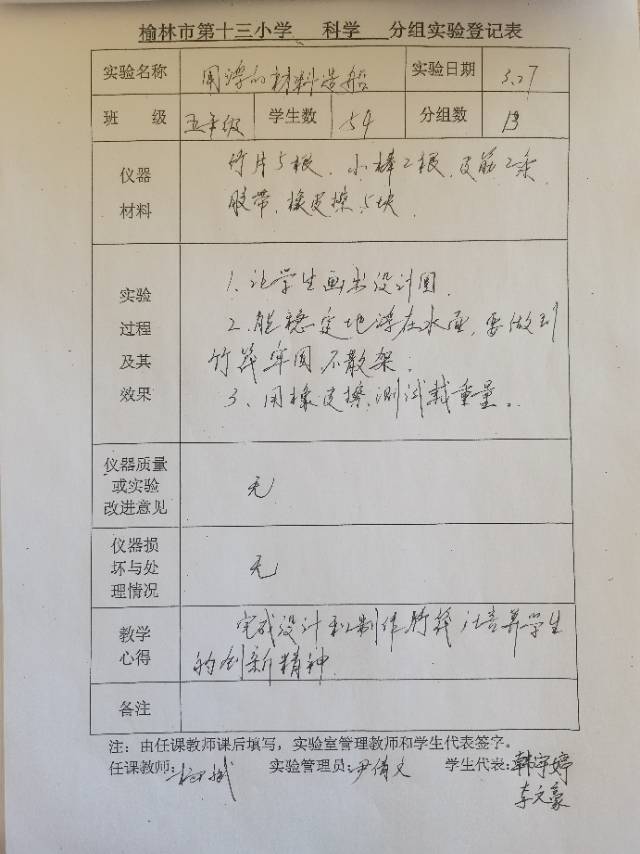 榆林市第十三小学 科学 分组实验登记表
实验名称 用浮的材料造船 实验日期 3.27
班 级 五年级 学生数 54 分组数 13
仪器
材料
竹片5根、小棒2根、皮筋2条
胶带、橡皮擦5块
实验
过程
及其
效果
1、让学生画出设计图.
2、能稳定地浮在水面,要做到
竹筏牢固,不散架.
3、用橡皮擦,测试载重量。
仪器质量
或实验
改进意见
无
仪器损
坏与处
理情况
无
教学
心得
完成设计和制作竹筏 培养学生
的创新精神
备注
注:由任课教师课后填写,实验室管理教师和学生代表签字。
任课教师: 实验管理员:尹倩文 学生代表:韩宇婷
李文豪